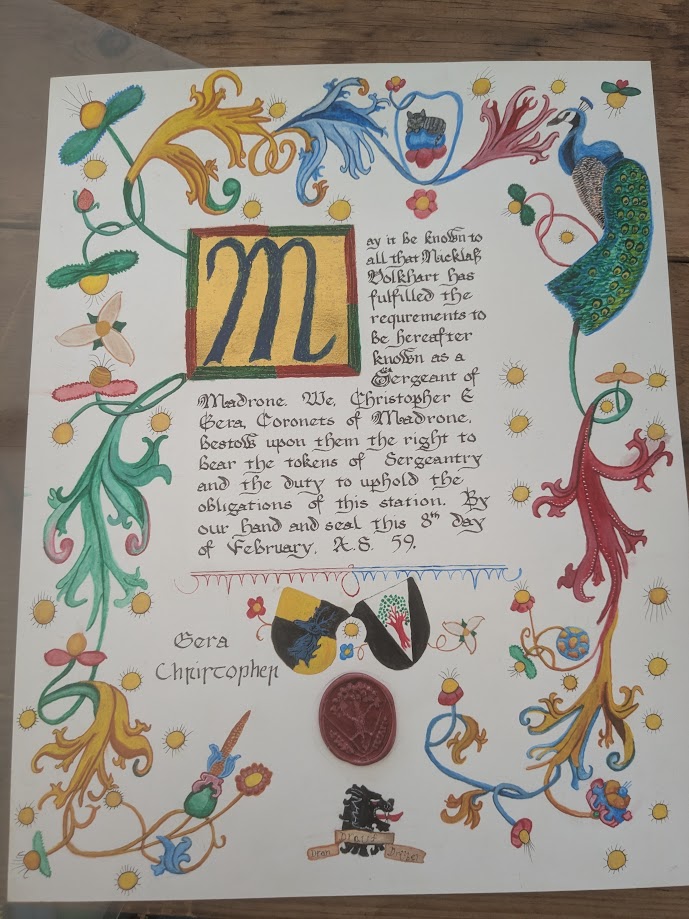 May it be known to
all that Nicklaß
Volkhart has
fulfilled the
requrements to
be hereafter
known as a
Sergeant of
Madrone. We, Christopher &
Gera, Coronets of Madrone,
bestow upon them the right to
bear the tokens of Sergeantry
and the duty to uphold the
obligations of this station. By
our hand and seal this 8th day
of February, A.S. 59.
Gera
Christopher